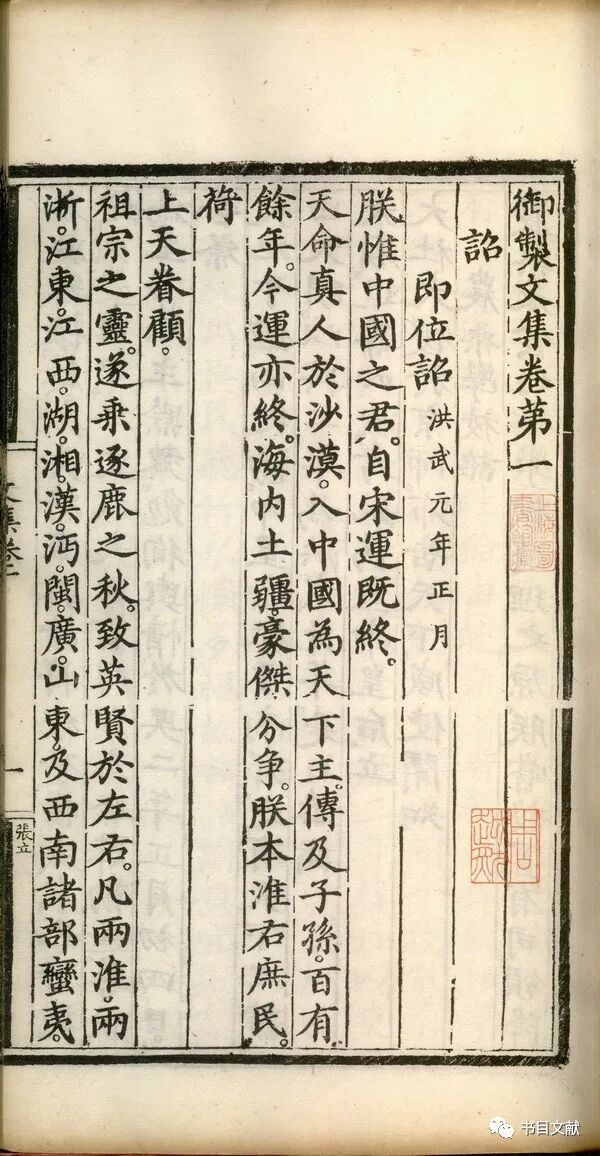 御製文集卷第一
詔
即位詔洪武元年正月
朕惟中國之君。自宋運既終。
天命真人於沙漠。入中國為天下主。傳及子孫。百有
餘年。今運亦終。海內土疆。豪傑分争。朕本淮右庶民。
荷
上天眷顧。
祖宗之靈。遂乘逐鹿之秋。致英賢於左右。凡兩淮。兩
淅。江東。江西。湖。湘。漢。沔。閩。廣。山東。及西南諸部蠻夷。
文集卷一
一
張立
书目文献